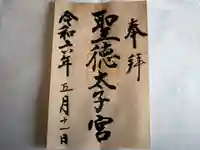 奉拝
聖徳太子宮
令和六年五月十一日